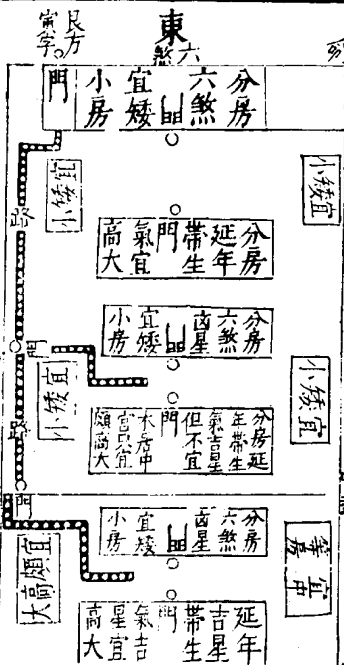 東
六煞
艮方
寅字。
分房
六煞
門
宜矮
小房
門
宜矮小
宜矮小
路
分房
延年
帶生
門
氣宜
高大
分房
六煞
凶星
門
宜矮
小房
門
宜矮小
宜矮小
路
分房延
年帶生
氣吉星
但不宜
門
木居中
宮只宜
頗高大
門
分房
六煞
凶星
門
宜矮
小房
宜中等房
宜頗高大
延年
吉星
帶生
門
氣吉
星宜
高大